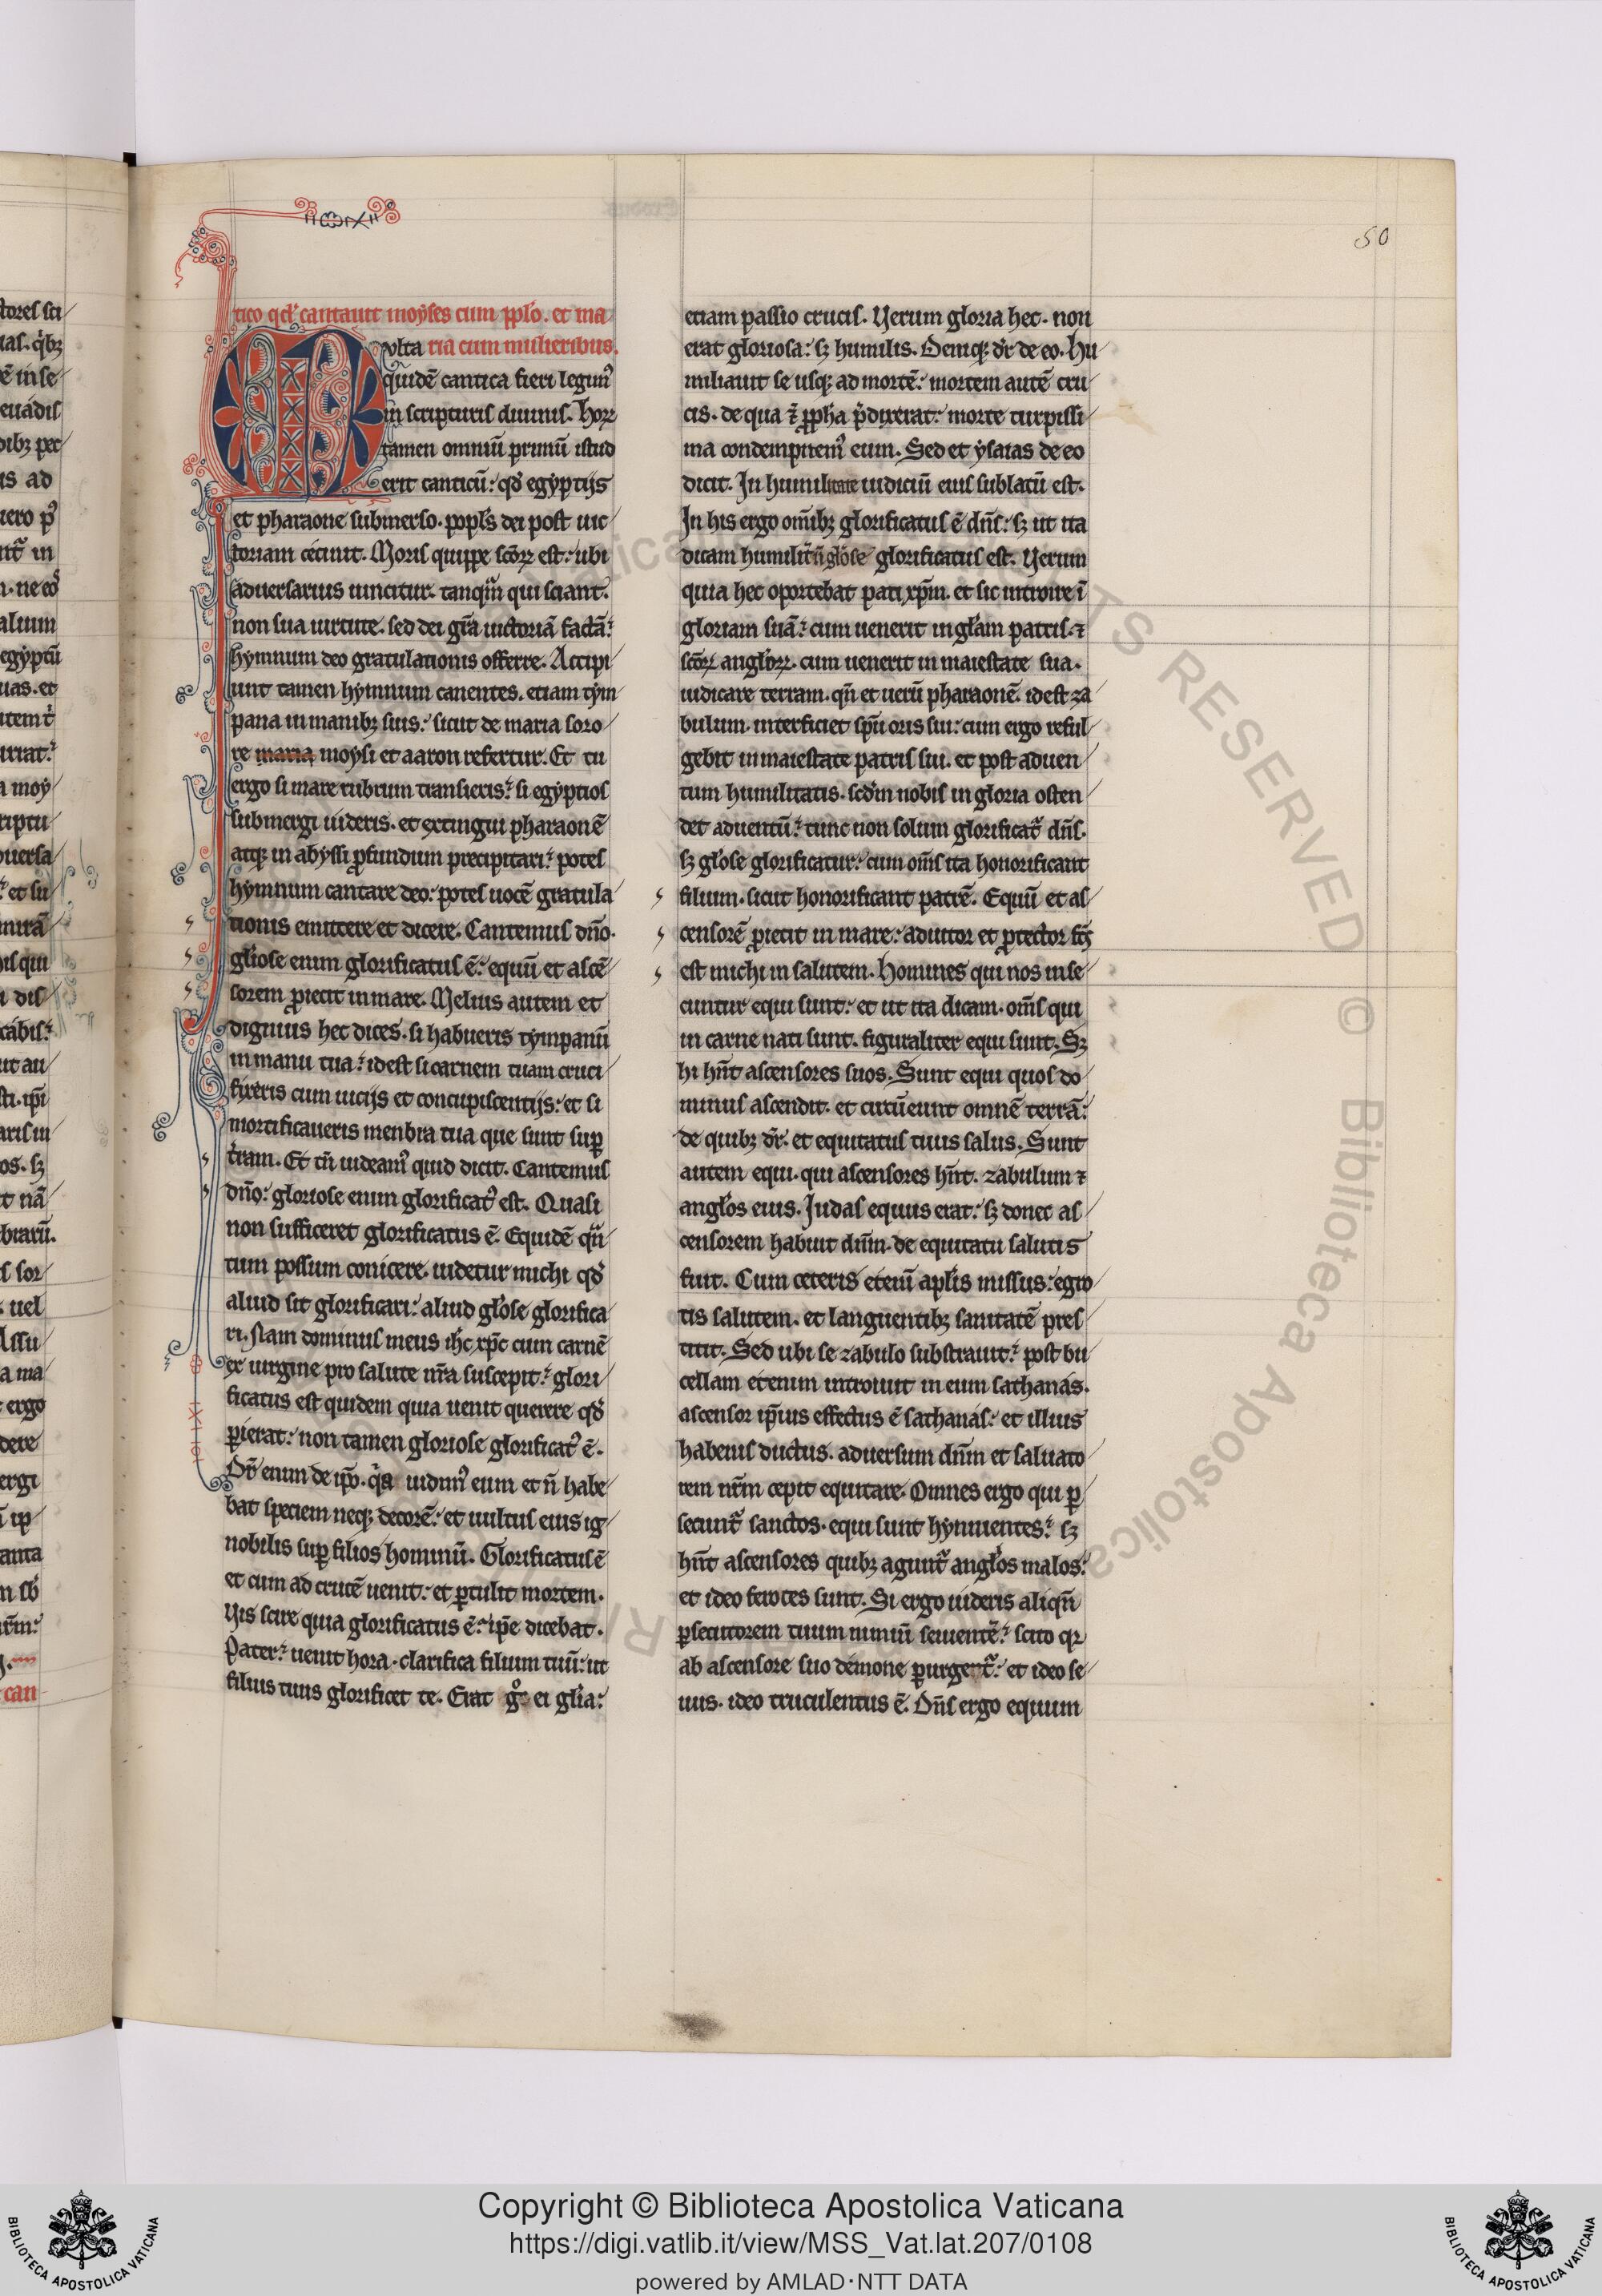 50
tico qd' cantauit moyses cum pp̄lo. et ma
Multa ria cum mulieribus.
quidē cantica fieri legim᷒
in scripturis diuinis. hoꝝ
tamen omniū primū istud
erit canticū: qd̓ egyptijs
et pharaone submerso. popl's dei post uic
toriam cecinit. Moris quippe scōꝝ est: ubi
aduersarius uincitur. tanqͣm qui sciant.
non sua uirtute. sed dei grā uictoriā factā:
hymnum deo gratulationis offerre. Accipi
unt tamen hymnum canentes. etiam tym
pana in manibꝫ suis: sicut de maria soro
re maria moysi et aaron refertur. Et tu
ergo si mare rubrum transieris: si egyptios
submergi uideris. et extingui pharaonē
atqꝫ in abyssi ꝓfundum precipitari: potes
hymnum cantare deo: potes uocē gratula
tionis emittere et dicere. Cantemus dn̄o.
gl'iose enim glorificatus ē: equū et ascē
sorem ꝓiecit in mare. Melius autem et
dignius hec dices. si habueris tympanū
in manu tua: idest si carnem tuam cruci
fixeris cum uicijs et concupiscentijs: et si
mortificaueris menbra tua que sunt suꝑ
t̓ram. Et tn̄ uideam᷒ quid dicit. Cantemus
dn̄o: gloriose enim glorificat᷒ est. Quasi
non sufficeret glorificatus ē. Equidē qͣn
tum possum conicere. uidetur michi qd̓
aliud sit glorificari: aliud gl'ose glorifica
ri. Nam dominus meus ih̄c xp̄c cum carnē
ex uirgine pro salute nr̄a suscepit: glori
ficatus est quidem quia uenit querere qd̓
ꝑierat: non tamen gloriose glorificat᷒ ē.
Dr̄ enim de ip̄o. qͣa uidim᷒ eum et n̄ habe
bat speciem neqꝫ decorē: et uultus eius ig
nobilis suꝑ filios hominū. Glorificatus ē
et cum ad crucē uenit: et ꝑtulit mortem.
Vis scire quia glorificatus ē: ip̄e dicebat.
Pater: uenit hora. clarifica filium tuū: ut
filius tuus glorificet te. Erat gͦ ei gl'ia:
etiam passio crucis. Verum gloria hec. non
erat gloriosa: sꝫ humilis. Deniqꝫ dr̄ de eo. Hu
miliauit se usqꝫ ad mortē: mortem autē cru
cis. de qua ⁊ ꝓpha p̄dixerat: morte turpissi
ma condempnem᷒ eum. Sed et ysaias de eo
dicit. In humilitate iudiciū eius sublatū est.
In his ergo om̄ibꝫ glorificatus ē dn̄s: sꝫ ut ita
dicam humilit̓ n̄ gl'ose glorificatus est. Verum
quia hec oportebat pati xp̄m. et sic introire ī
gloriam suā: cum uenerit in gl'am patris. ⁊
scōꝝ angl'oꝝ. cum uenerit in maiestate sua.
iudicare terram. qn̄ et uerū pharaonē. idest za
bulum. interficiet sp̄u oris sui: cum ergo reful
gebit in maiestate patris sui. et post aduen
tum humilitatis. scd̓m nobis in gloria osten
det aduentū: tunc non solum glorificat̓ dn̄s.
sꝫ gl'ose glorificatur: cum om̄s ita honorificant
filium. sicut honorificant patrē. Equū et as
censorē ꝓiecit in mare: adiutor et ꝓtector
est michi in salutem. Homines qui nos inse
cuntur equi sunt: et ut ita dicam. om̄s qui
in carne nati sunt. figuraliter equi sunt. Sꝫ
hi hn̄t ascensores suos. Sunt equi quos do
minus ascendit. et circūeunt omnē terrā:
de quibꝫ dr̄. et equitatus tuus salus. Sunt
autem equi. qui ascensores hn̄t. zabulum ⁊
angl'os eius. Iudas equus erat: sꝫ donec as
censorem habuit dn̄m. de equitatu salutis
fuit. Cum ceteris etenī apl'is missus: egro
tis salutem. et languentibꝫ sanitatē pres
titit. Sed ubi se zabulo substrauit: post bu
cellam etenim introiuit in eum sathanas.
ascensor ip̄ius effectus ē sathanas: et illius
habenis ductus. aduersum dn̄m et saluato
rem nr̄m cepit equitare. Omnes ergo qui ꝑ
secunt̓ sanctos. equi sunt hynnientes: sꝫ
hn̄t ascensores quibꝫ agunt̓ angl'os malos:
et ideo feroces sunt. Si ergo uideris aliqn̄
ꝑsecutorem tuum nimiū seuientē: scito qꝛ
ab ascensore suo demone ꝑurget̓: et ideo se
uus. ideo truculentus ē. Dn̄s ergo equum
Copyright © Biblioteca Apostolica Vaticana
https://digi.vatlib.it/view/MSS_Vat.lat.207/0108
powered by AMLAD·NTT DATA
BIBLIOTECA APOSTOLICA VATICANA
BIBLIOTECA APOSTOLICA VATICANA